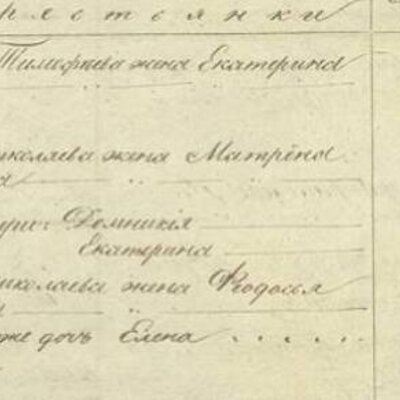 рестьянки
Тимофѣева жена Екатерина
иколаева жена Матрёна
Домникія
Екатерина
иколаева жена Ѳодосья
же дочь Елена